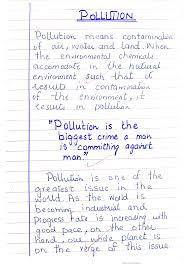 POLLUTION
Pollution means contamination
of air, water and land. When
the environmental chemicals
accomodate in the natural
environment such that it
results in contamination
of the environment, it
results in pollution
"Pollution is the
biggest crime a man
is committing against
man."
Pollution is one of the
greatest issue in the
world. As the world is
becoming industrial and
progress rate is increasing with
good pace, on the other
hand, our whole planet is
on the verge of this issue